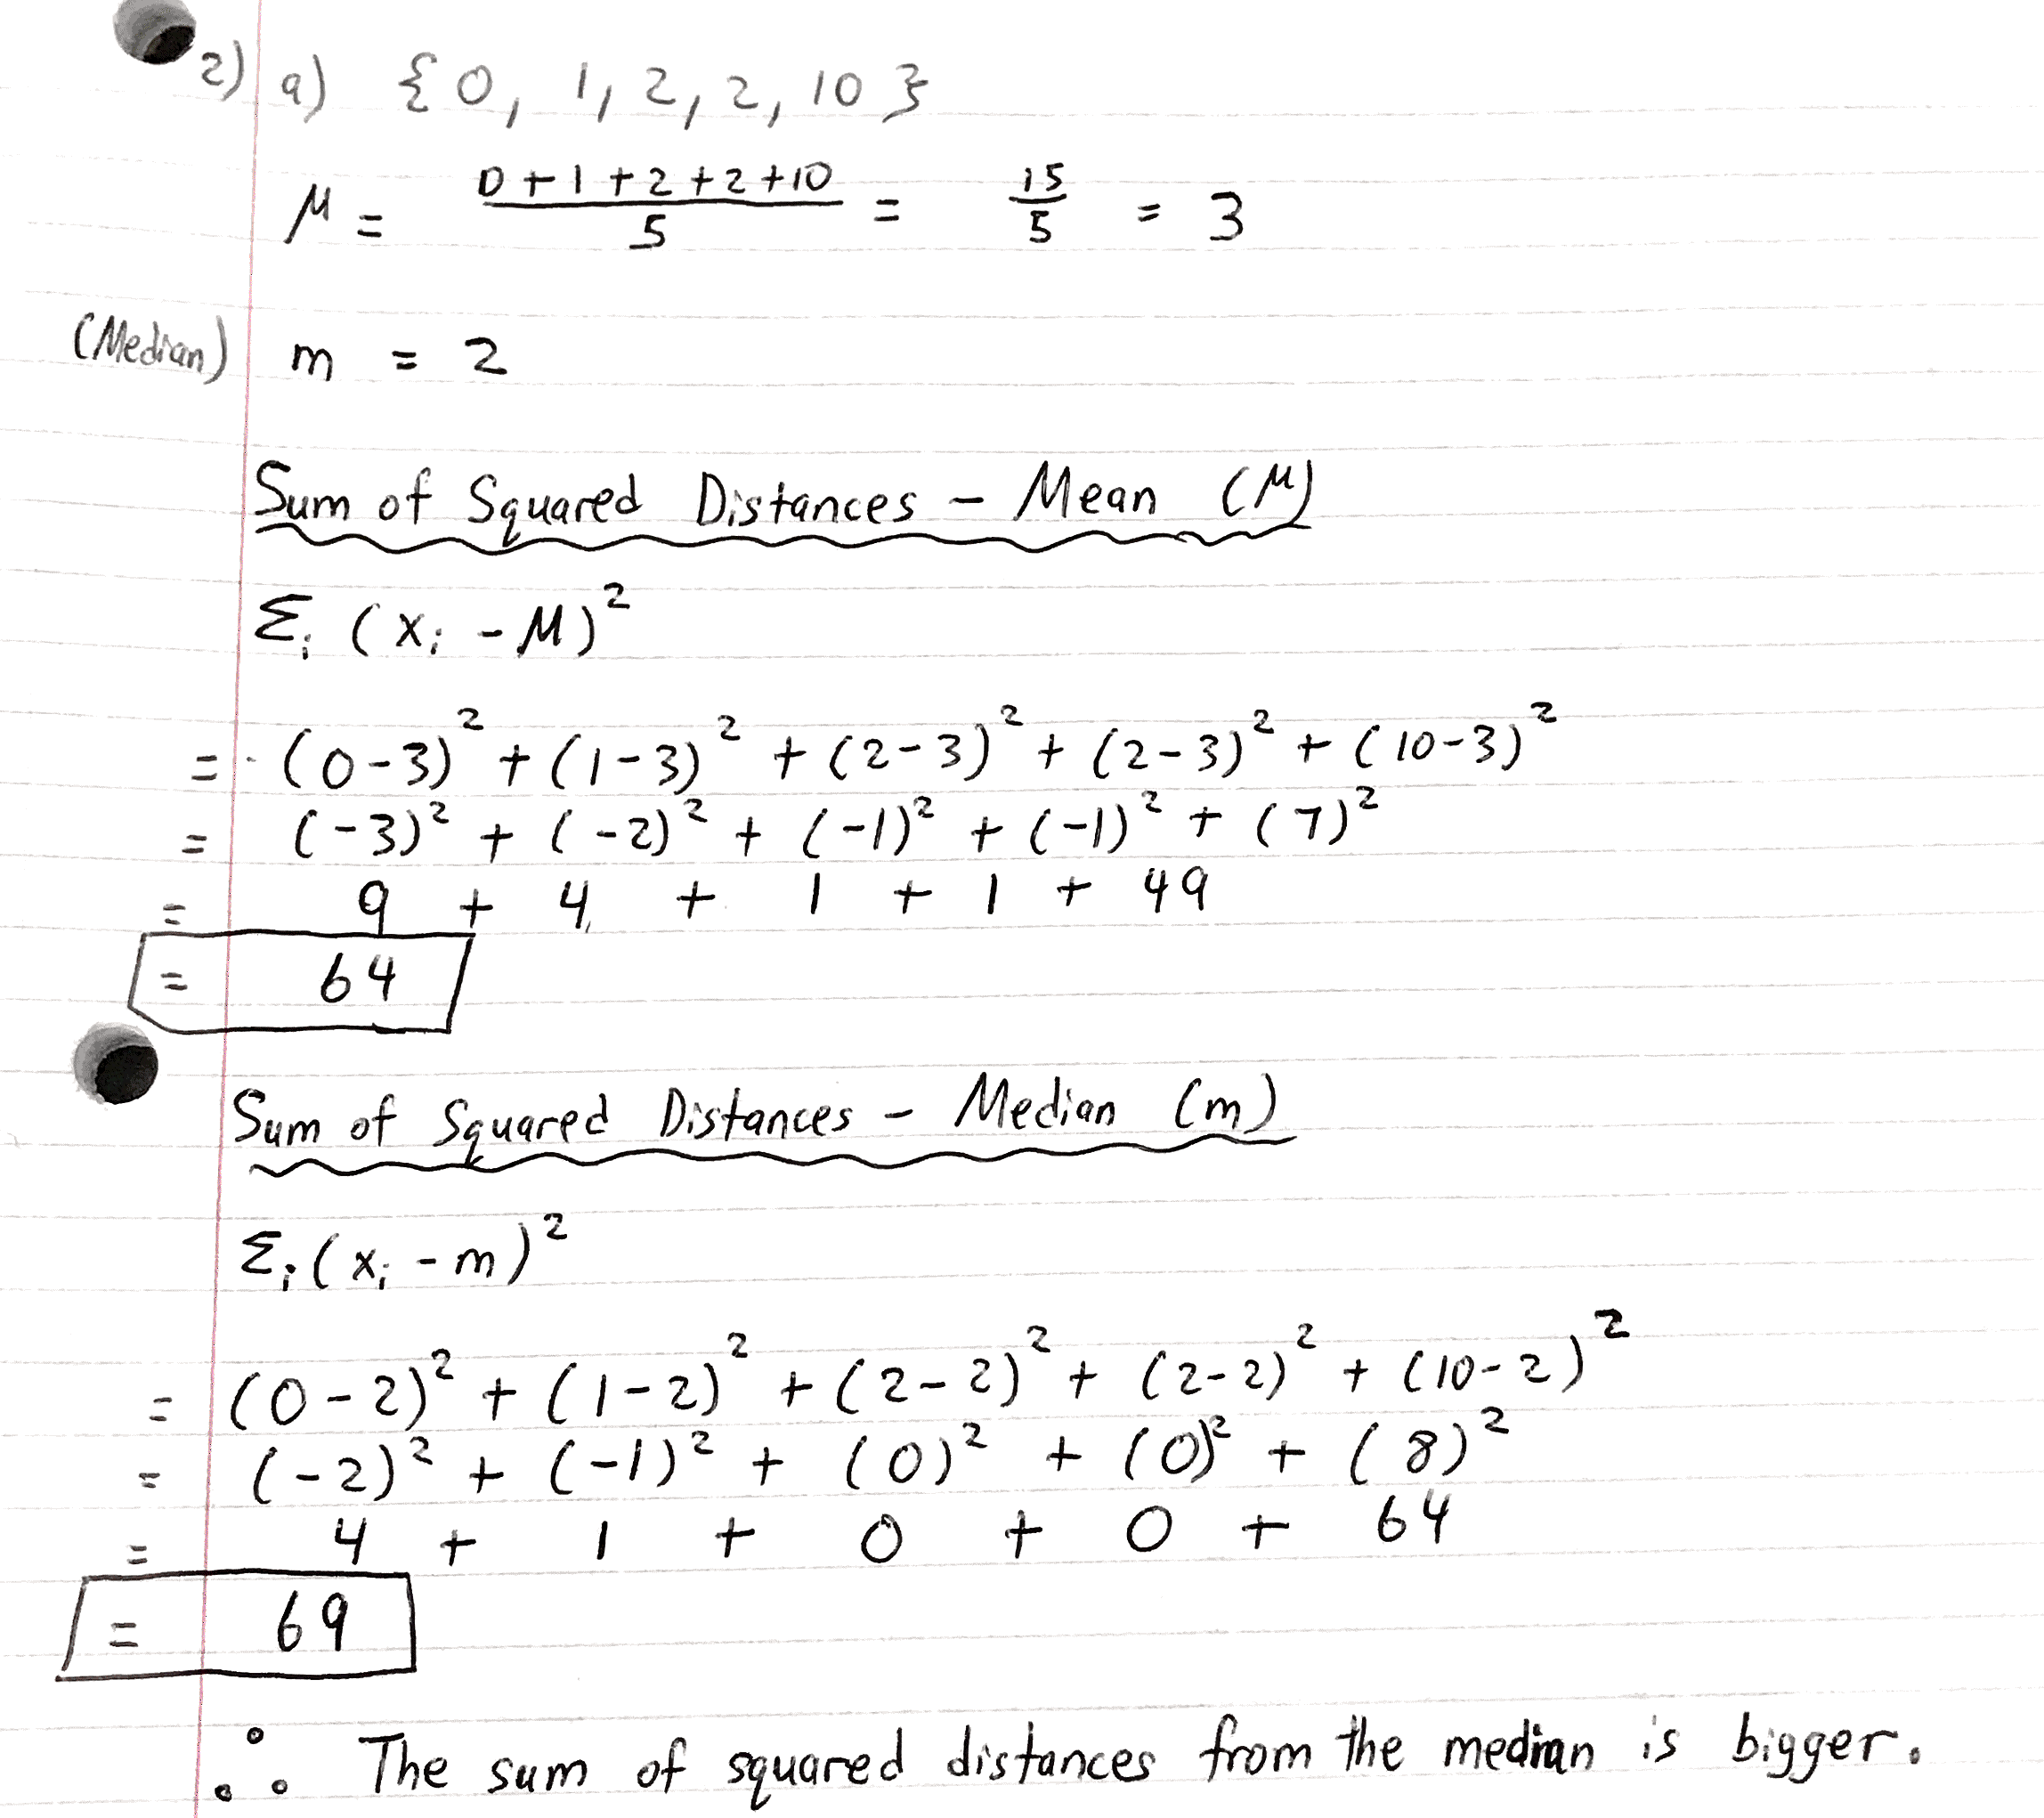 2) a) {0, 1, 2, 2, 10}
μ = (0+1+2+2+10)/5 = 15/5 = 3
(Median) m = 2
Sum of Squared Distances - Mean (μ)
Σᵢ (xᵢ - μ)²
= (0-3)² + (1-3)² + (2-3)² + (2-3)² + (10-3)²
= (-3)² + (-2)² + (-1)² + (-1)² + (7)²
= 9 + 4 + 1 + 1 + 49
= 64
Sum of Squared Distances - Median (m)
Σᵢ (xᵢ - m)²
= (0-2)² + (1-2)² + (2-2)² + (2-2)² + (10-2)²
= (-2)² + (-1)² + (0)² + (0)² + (8)²
= 4 + 1 + 0 + 0 + 64
= 69
∴ The sum of squared distances from the median is bigger.